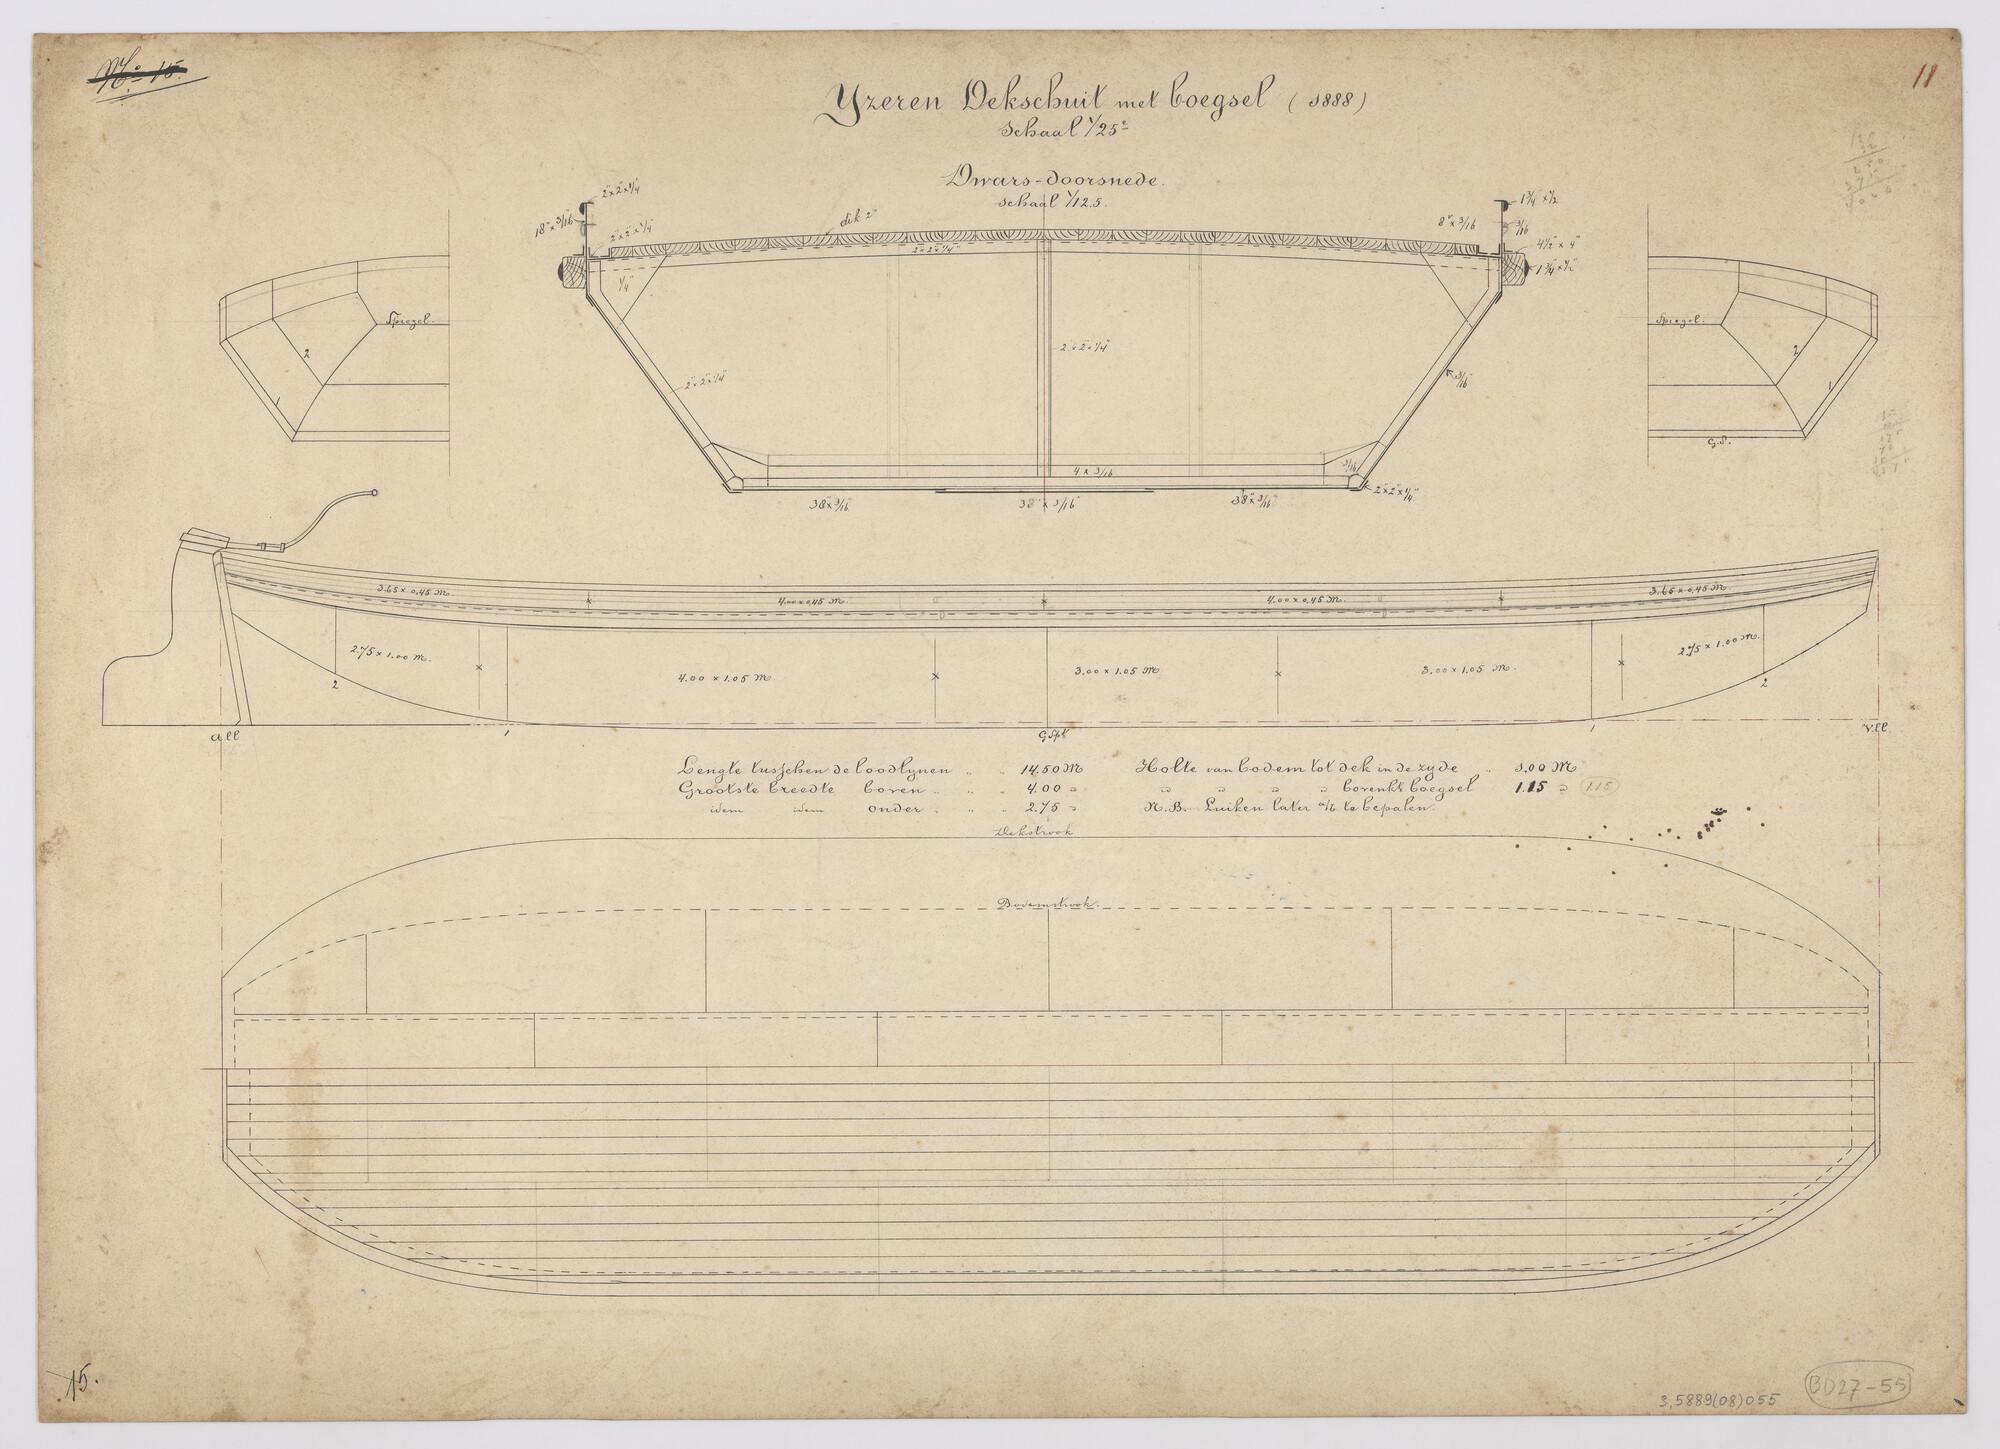 No 15.
11
Yzeren Dekschuit met boegsel (1888)
Schaal 1/25e
Dwars-doorsnede.
Schaal 1/12.5.
2" x 2" x 1/4
18" x 3/16
2" x 2" x 1/4"
dik 2"
2" x 2" x 1/4"
8" x 3/16
1 3/4 x 1/2
3/16
4 1/2" x 4"
1 3/4" x 1/2"
1/4"
Spiegel.
Spiegel.
2
2
1
1
2" x 2" x 1/4"
2" x 2" x 1/4"
3/16
G.S.
4 x 3/16
3/16
2" x 2" x 1/4"
38" x 3/16
38" x 3/16
38" x 3/16
3.65 x 0,45 M.
4.00 x 0,45 M.
4.00 x 0,45 M.
3.65 x 0,45 M.
2.75 x 1.00 M.
4.00 x 1.05 M.
3.00 x 1.05 M
3.00 x 1.05 M.
2.75 x 1.00 M.
2
2
All
1
G.Spt
1
Vll
Lengte tusschen de loodlynen " " 14.50 M
Grootste breedte boven " " " 4.00 "
idem idem onder " " 2.75 "
Holte van bodem tot dek in de zyde " 1.00 M
" " " " bovenkt boegsel 1.15 " 1.15
N.B. Luiken later o/t te bepalen.
Dekstrook
Bodemstrook.
15.
3,5889(08)055
BD27-55